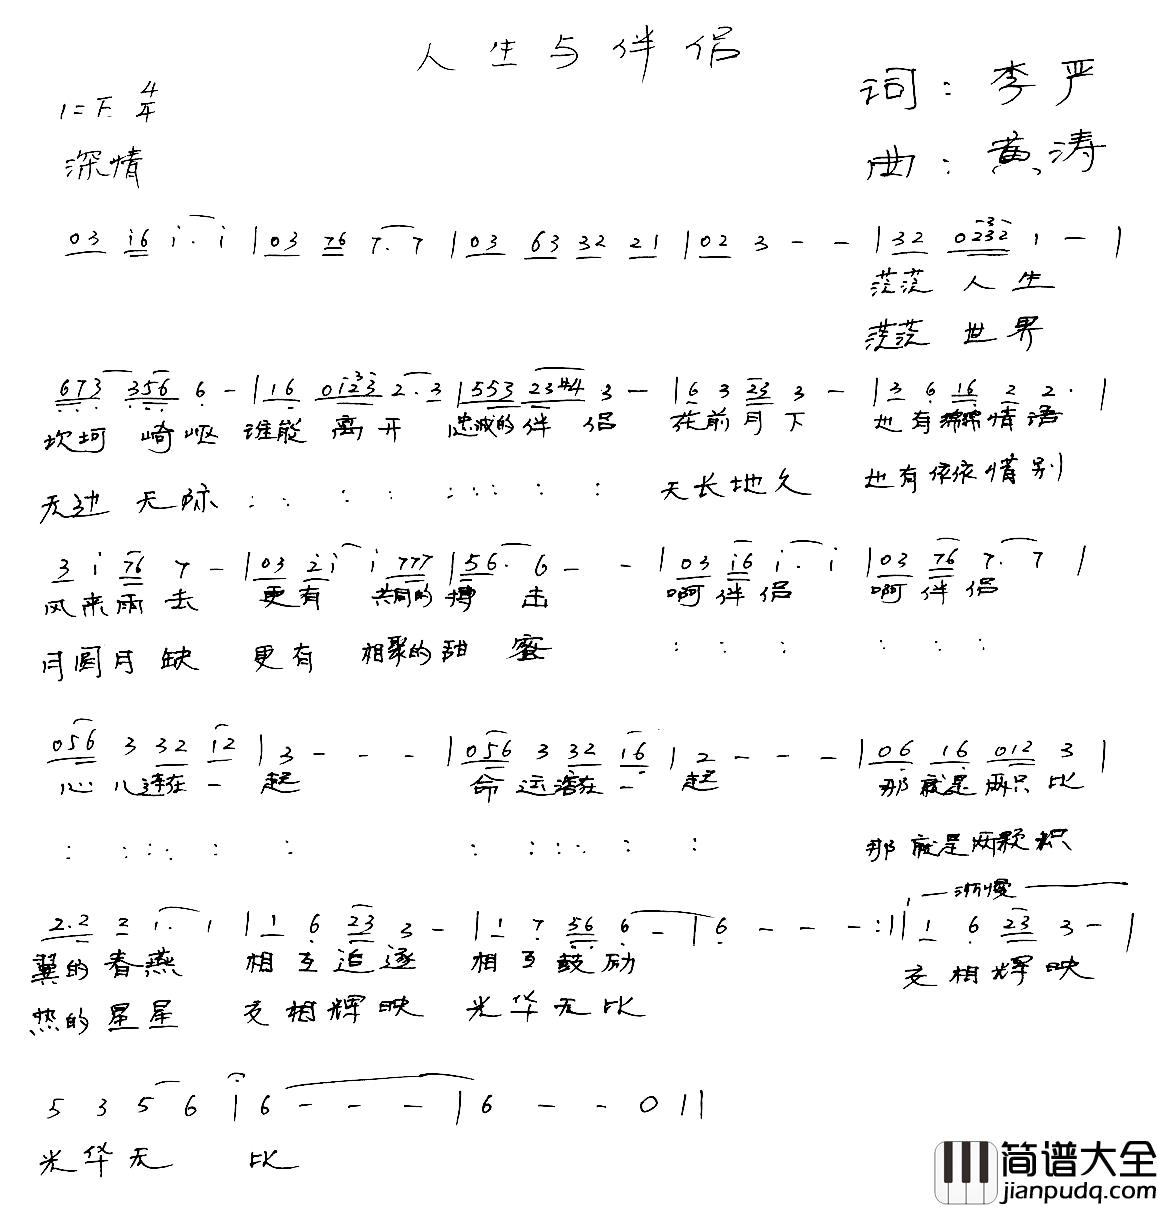 人生与伴侣
词：李严
1=F 4/4
深情
曲：黄涛
03 i6 i. i | 03 76 7. 7 | 03 63 32 21 | 02 3 - - | 32 0232 1 - |
茫茫 人生
茫茫 世界
673 356 6 - | 16 0123 2.3 | 553 23#4 3 - | 6 3 23 3 - | 3 6 16 2 2. |
坎坷 崎岖 谁能 离开 忠诚的伴侣 花前月下 也有绵绵情语
无边 无际 : : : : : : : : : 天长地久 也有依依惜别
3 i 76 7 - | 03 2i i 777 | 56. 6 - - | 03 i6 i. i | 03 76 7. 7 |
风来雨去 更有 共同的搏击 啊伴侣 啊伴侣
月圆月缺 更有 相聚的甜蜜 : : : : : :
056 3 32 12 | 3 - - - | 056 3 32 16 | 2 - - - | 06 16 012 3 |
心儿连在一起 命运溶在一起 那就是两只比
: : : : : : : : : : : : 那就是两颗炽
渐慢
2.2 2 1. 1 | 1 6 23 3 - | 1 7 56 6 - | 6 - - - :|| 1 6 23 3 - |
翼的春燕 相互追逐 相互鼓励 交相辉映
热的星星 交相辉映 光华无比
5 3 5 6 | 6 - - - | 6 - - 0 ||
光华无 比
简谱大全
jianpudq.com